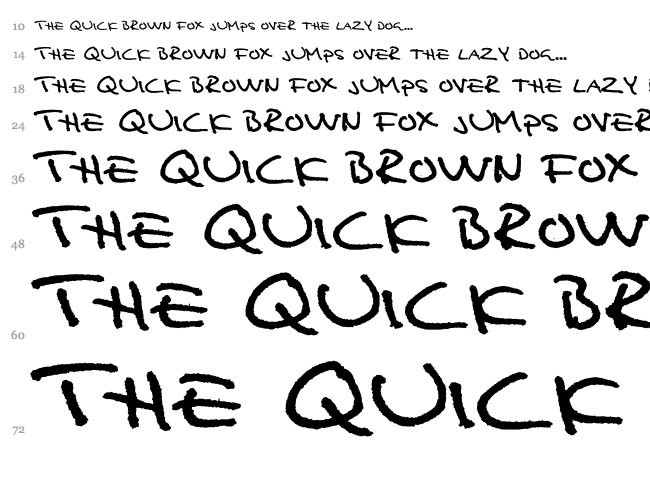 10 THE QUICK BROWN FOX JUMPS OVER THE LAZY DOG...
14 THE QUICK BROWN FOX JUMPS OVER THE LAZY DOG...
18 THE QUICK BROWN FOX JUMPS OVER THE LAZY
24 THE QUICK BROWN FOX JUMPS OVER
36 THE QUICK BROWN FOX
48 THE QUICK BROW
60 THE QUICK BR
72 THE QUICK